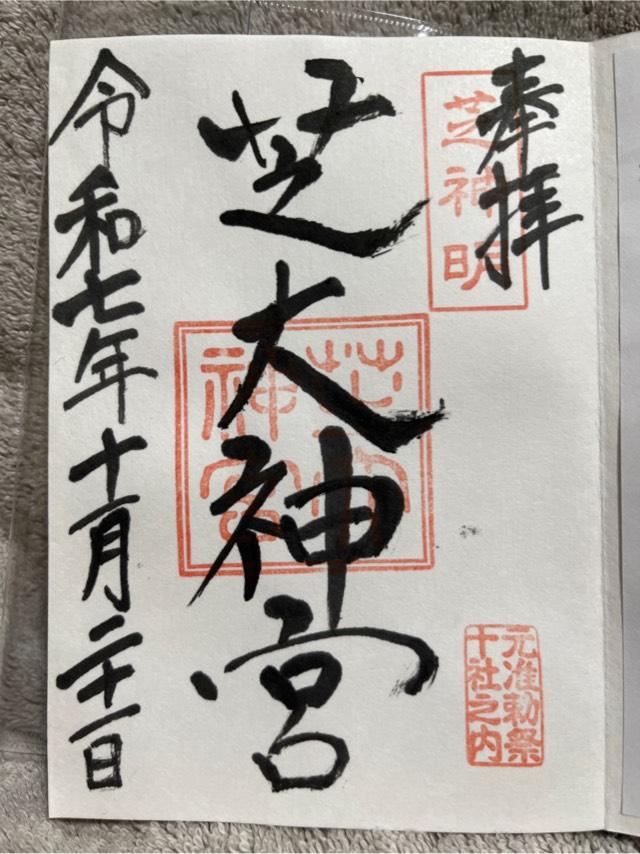 奉拝
芝神明
元准勅祭
十社之内
芝大神宮
芝大
神宮
令和七年十一月二十一日